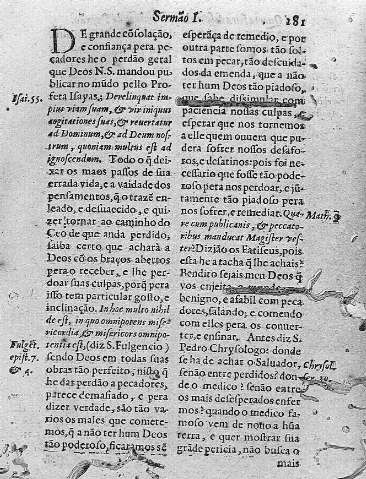 Sermão I.
181
DE grande cõsolação,
e confiança pera pe-
cadores he o perdão geral
que Deos N.S. mandou pu-
blicar no mũdo pello Pro-
Isai.55.
feta Isayas; Derelinquat im-
pius viam suam, & vir iniquus
cogitationes suas, & reuertatur
ad Dominum, & ad Deum nos-
trum, quoniam multus est ad
ignoscendum. Todo o q̃ dei-
xar os maos passos de sua
errada vida, e a vaidade dos
pensamentos, q̃ o trazẽ en-
leado, e desuaecido, e qui-
zer tornar ao caminho do
Ceo de que anda perdido,
saiba certo que achará a
Deos cõ os braços abertos
pera o receber, e lhe per-
doar suas culpas, porq̃ pera
isso tem particular gosto, e
inclinação. In hac multo nihil
de est, in quo omnipotens mise-
ricordia, & misericors omnipo-
Fulgẽt.
tentia est, (diz S. Fulgencio)
epist.7.
sendo Deos em todas suas
& 4.
obras tão perfeito, nisto q̃
he das perdão a pecadores,
parece demasiado, e pera
dizer verdade, são tão va-
rios os males que comete-
mos, q̃ a não ter hum Deos
tão poderoso, ficaramos sẽ
esperãça de remedio, e por
outra parte somos tão sol-
tos em pecar, tão descuida-
dos da emenda, que a não
ter hum Deos tão piadoso,
que sabe dissimular com
paciencia nossas culpas, e
esperar que nos tornemos
a elle quem ouuera que pu-
dera sofrer nossos desafo-
ros, e desatinos: pois foi ne-
cessario que fosse tão pode-
roso pera nos perdoar, e jũ-
tamente tão piadoso pera
nos sofrer, e remediar. Qua-
Math. 9
re cum publicanis, & peccato-
ribus manducat Magister ves-
ter? Dizião os Fariseus, pois
esta he a tacha q̃ lhe achais?
Bendito sejais meu Deos q̃
vos
benigno, e afabil com peca-
dores, falando; e comendo
com elles pera os conuer-
ter, e ensinar. Antes diz S.
Pedro Chrysologo: donde
se ha de achar o Saluador,
Chrysol.
senão entre perdidos? don-
de o medico? senão entre
os mais desesperados enfer-
mos? quando o medico fa-
moso vem de nouo a hũa
terra, e quer mostrar sua
grãde pericia, não busca o
mais